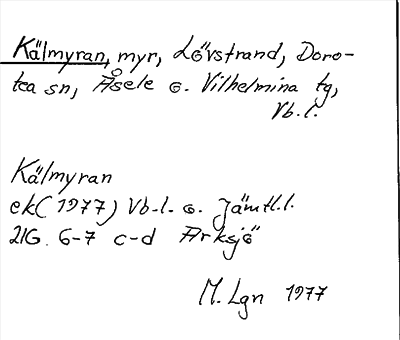 Kälmyran, myr, Lövstrand, Doro-
tea sn, Åsele o. Vilhelmina tg,
Vb.l.
Kälmyran
ek (1977) Vb-l. o. Jämtl.l.
21G. 6-7 c-d Arksjö
M. Lgn 1977